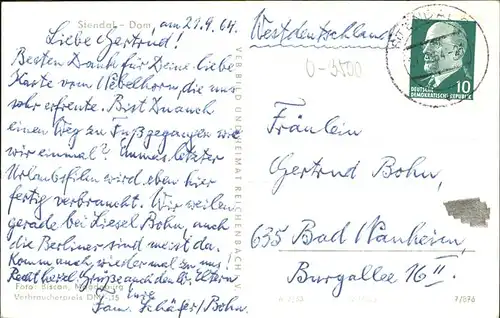 Stendal - Dom, am 21.9.64.
Liebe Gertrud!
Besten Dank für Deine liebe
Karte vom Nebelhorn, die uns
sehr erfreute. Bist Du auch
einen Weg zu Fuß gegangen wie
wir einmal? Unser letzter
Urlaubsfilm wird eben hier
fertig verbraucht. Wir weilen
gerade bei Liesel Bohn, auch
die Berliner sind meist da.
Komm auch wieder mal zu uns!
Recht herzl. Grüße auch den lb. Eltern
Foto: Biscan,
Eure
Verbraucherpreis DM
Fam. Schäfer/Bohn.
VEB BILD UND HEIMAT REICHENBACH i. V.
Westdeutschland
0-3500
DEUTSCHE
DEMOKRATISCHE REPUBLIK
10
Fräulein
Gertrud Bohn,
635 Bad Nauheim,
Burgallee 16 II.
7/076